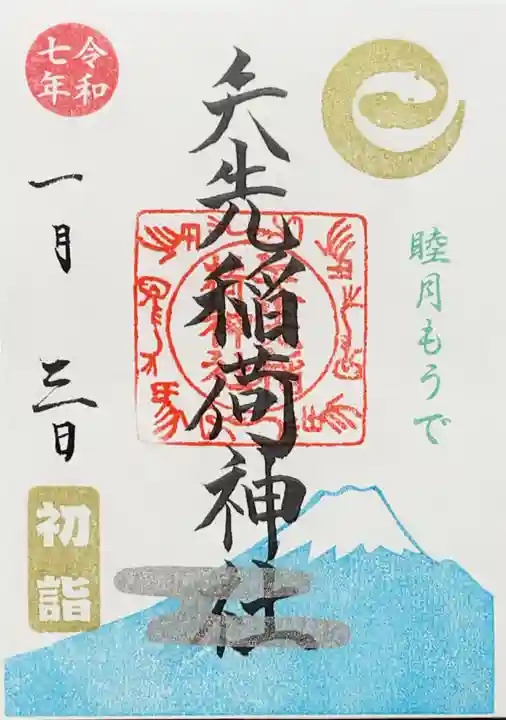 睦月もうで
矢先稲荷神社
令和
七年
一月三日
初詣